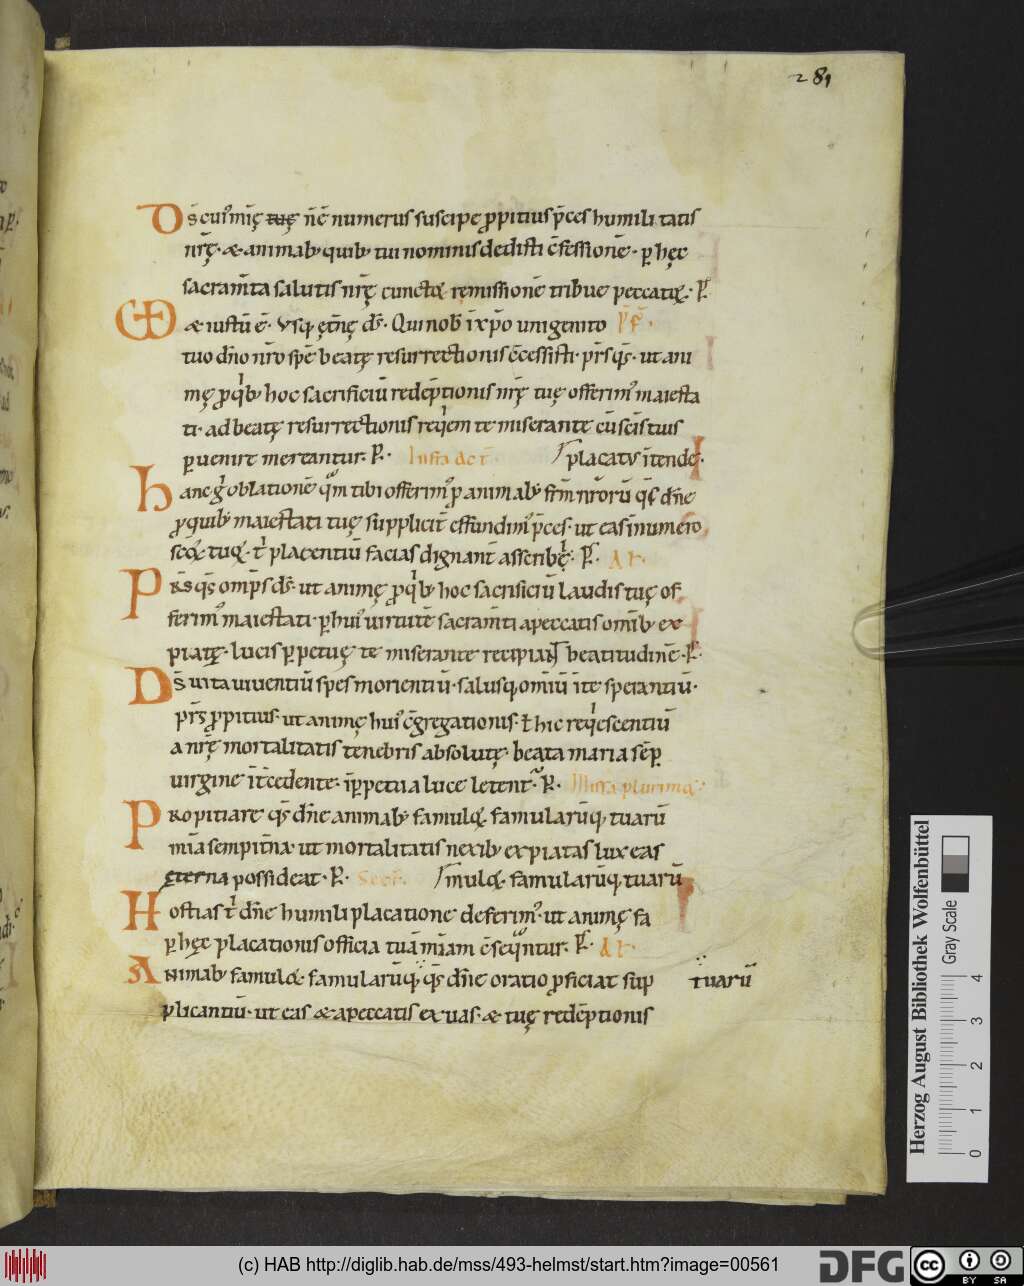 281
Ds̄ cuiꝰ mīę tuę ñc̄ numerus suscipe ꝓpitius p̄ces humilitatis
nr̄ę. & animabꝫ quibꝫ tui nominis dedisti c̄fessionē. ꝑ hęc
sacram̄ta salutis nr̄ę cunctoꝝ remissionē tribue peccatoꝝ. P̄
& iustū ē. Vsqꝫ ęt̄nę ds̄. Qui nob̄ ī xp̄o unigenito P̄F̄.
tuo dn̄o nr̄o spē beatę resurrectionis c̄cessisti. p̄rs q̄s. ut ani
mę ꝓ qͥbꝫ hoc sacrificiū redēptionis nr̄ę tuę offerimꝰ maiesta
ti. ad beatę resurrectionis reqͥem te miserante cū sc̄is tuis
ꝑuenire mereantur. P̄. Infra act̄
placatu ītende.
Hanc gͥ oblationē qͣm tibi offerimꝰ ꝓ animabꝫ frm̄ nr̄orū q̄s dn̄e
ꝓ quibꝫ maiestati tuę supplicit̄ effundimꝰ p̄ces. ut eas innumero
scōꝝ tuoꝝ. t̄ placentiū facias dignant̄ asscribͥ. P̄. Ad
Prs̄ q̄s omp̄s ds̄. ut animę ꝓ qͥbꝫ hoc sacrificiū laudis tuę of
ferimꝰ maiestati. ꝑ huiꝰ uirtutē sacram̄ti apeccatis om̄ibꝫ ex
piatę. lucis ꝑpetuę te miserante recipiant beatitudinē. P̄.
Ds̄ uita uiuentiū spes morientiū. salus omīū ī te sperantiū.
p̄rs ꝓpitius. ut animę huiꝰ c̄gregationis. t̄ hic reqͥescentiū
a nr̄ę mortalitatis tenebris absolutę. beata maria sēꝑ
uirgine īt̄cedente. īꝑpetua luce letentͬ. P̄. Missa plurimoꝝ.
Propitiare q̄s dn̄e animabꝫ famuloꝝ. famularūqꝫ tuarū
mīa sempit̄na. ut mortalitatis nexibꝫ expiatas lux eas
ęterna possideat. P̄. Secr̄.
muloꝝ. famularūqꝫ tuarū
Hostias t̄ dn̄e humili placatione deferimꝰ. ut animę fa
ꝑ hęc placationis officia tuā mīam c̄seqͣntur. P̄. Ad
Animabꝫ famuloꝝ. famularūqꝫ q̄s dn̄e oratio ꝓficiat sup
tuarū
plicantiū. ut eas & apeccatis exuas. & tuę redēptionis
Herzog August Bibliothek Wolfenbüttel
Gray Scale
0 1 2 3 4
(c) HAB http://diglib.hab.de/mss/493-helmst/start.htm?image=00561
DFG
cc BY SA